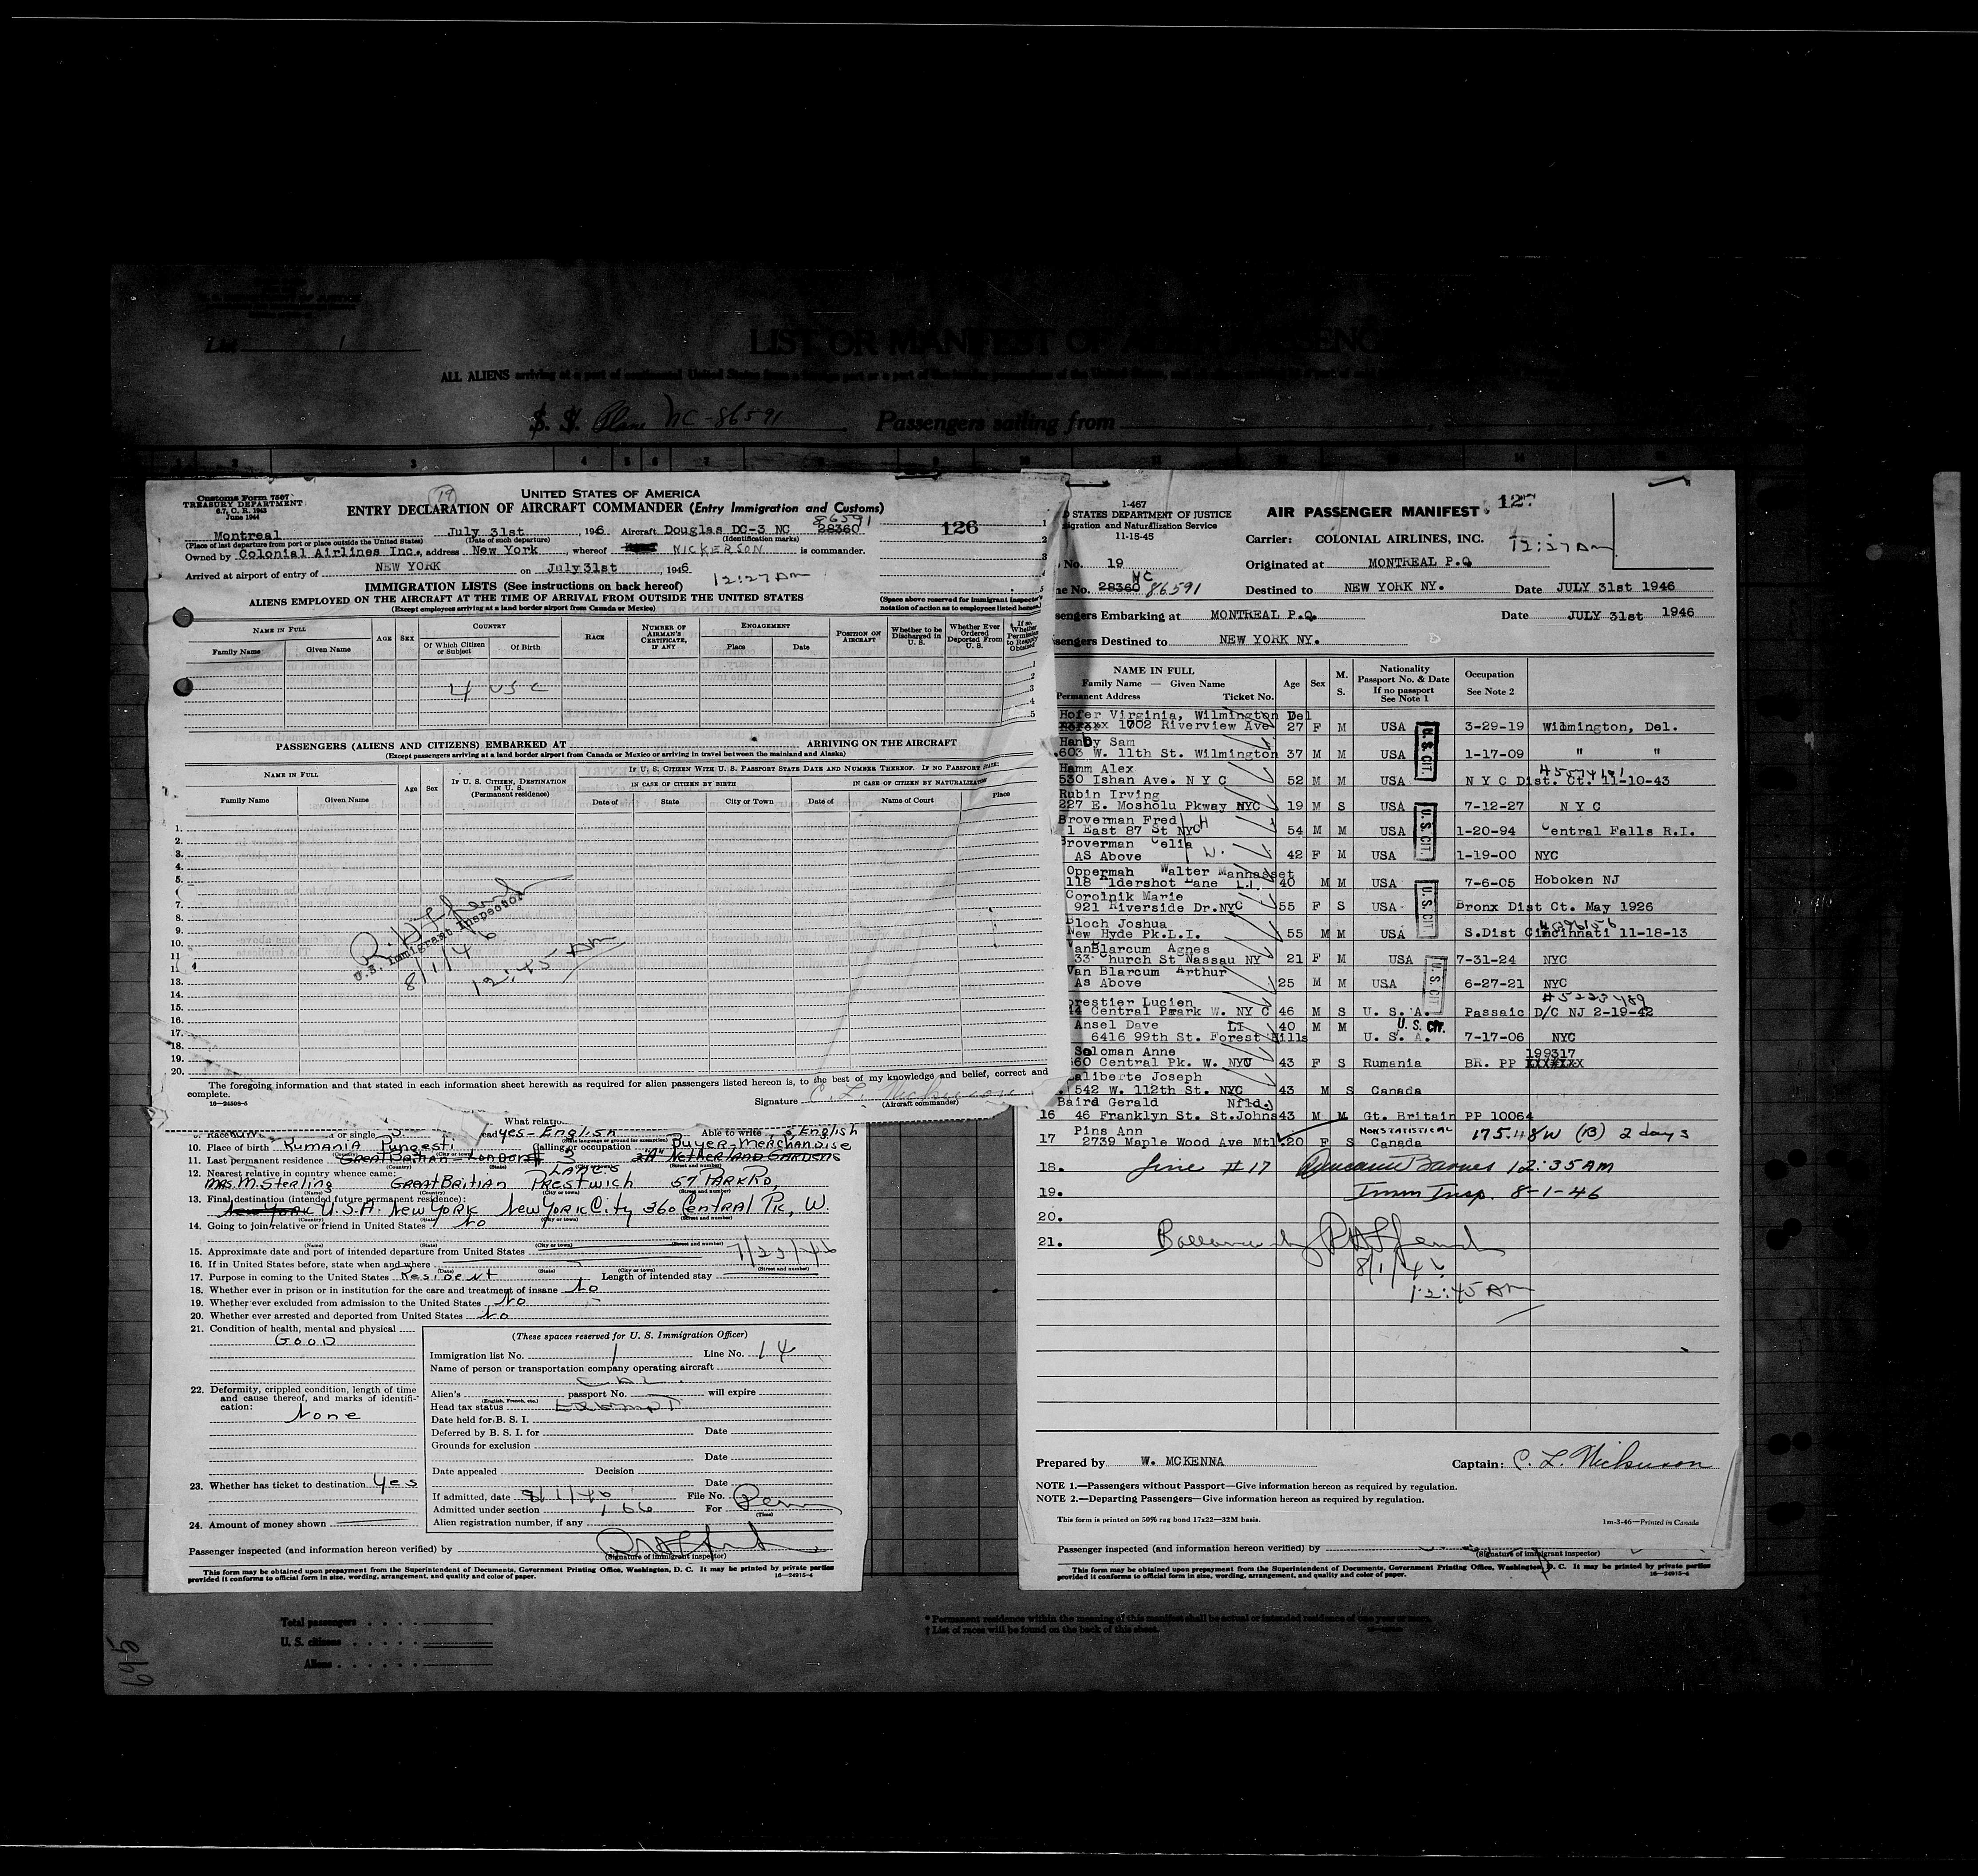 List 1
LIST OR MANIFEST OF
ALL ALIENS arriving at a port of continental United States from a foreign port or a port of the insular possessions of the United States,
S. S. Plane NC-86591 Passengers sailing from
Customs Form 7507
TREASURY DEPARTMENT
6.7, C. R. 1943
June 1944
19
UNITED STATES OF AMERICA
ENTRY DECLARATION OF AIRCRAFT COMMANDER (Entry Immigration and Customs)
126
86591
Montreal July 31st, 1946 Aircraft Douglas DC-3 NC 28360
(Place of last departure from port or place outside the United States) (Date of such departure) (Identification marks)
Owned by Colonial Airlines Inc., address New York, whereof NICKERSON is commander.
Arrived at airport of entry of NEW YORK on July 31st 1946 12:27 AM
IMMIGRATION LISTS (See instructions on back hereof)
ALIENS EMPLOYED ON THE AIRCRAFT AT THE TIME OF ARRIVAL FROM OUTSIDE THE UNITED STATES
(Except employees arriving at a land border airport from Canada or Mexico)
(Space above reserved for immigrant inspector's notation of action as to employees listed hereon.)
NAME IN FULL
Family Name Given Name
AGE SEX
COUNTRY
Of Which Citizen or Subject Of Birth
RACE
NUMBER OF AIRMAN'S CERTIFICATE, IF ANY
ENGAGEMENT
Place Date
POSITION ON AIRCRAFT
Whether to be Discharged in U. S.
Whether Ever Ordered Deported From U. S.
If so, Whether Permission to Reapply Obtained
4 USC
PASSENGERS (ALIENS AND CITIZENS) EMBARKED AT ARRIVING ON THE AIRCRAFT
(Except passengers arriving at a land border airport from Canada or Mexico or arriving in travel between the mainland and Alaska)
NAME IN FULL
Family Name Given Name
Age Sex
IF U. S. CITIZEN, DESTINATION IN U. S. (Permanent residence)
IF U. S. CITIZEN WITH U. S. PASSPORT STATE DATE AND NUMBER THEREOF. IF NO PASSPORT STATE:
IN CASE OF CITIZEN BY BIRTH IN CASE OF CITIZEN BY NATURALIZATION
Date of State City or Town Date of Name of Court Place
1.
2.
3.
4.
5.
7.
8.
9.
10.
11.
12.
13.
14.
15.
16.
17.
18.
19.
20.
U.S. Immigrant Inspector
8/1/46
12:45 AM
The foregoing information and that stated in each information sheet herewith as required for alien passengers listed hereon is, to the best of my knowledge and belief, correct and complete.
16—24598-6
Signature C. L. Nickerson
(Aircraft commander)
What relation
yes - English Able to write English
10. Place of birth Rumania Pungesti Calling or occupation Buyer-Merchandise
11. Last permanent residence Great Britian - London 3 "A" Netherland Gardens
12. Nearest relative in country whence came: LANCS
Mrs. M. Sterling Great Britian Prestwich 57 Park Rd,
13. Final destination (intended future permanent residence):
New York U.S.A. New York New York City 360 Central Pk, W.
14. Going to join relative or friend in United States No
15. Approximate date and port of intended departure from United States
7/23/46
16. If in United States before, state when and where
17. Purpose in coming to the United States Resident Length of intended stay
18. Whether ever in prison or in institution for the care and treatment of insane No
19. Whether ever excluded from admission to the United States No
20. Whether ever arrested and deported from United States No
21. Condition of health, mental and physical
GOOD
22. Deformity, crippled condition, length of time and cause thereof, and marks of identification:
None
23. Whether has ticket to destination Yes
24. Amount of money shown
(These spaces reserved for U. S. Immigration Officer)
Immigration list No. 1 Line No. 14
Name of person or transportation company operating aircraft
Alien's passport No. will expire
(English, French, etc.)
Head tax status Exempt
Date held for B. S. I.
Deferred by B. S. I. for Date
Grounds for exclusion
Date
Date appealed Decision
Date
If admitted, date 8/1/46 File No.
Admitted under section 166 For Perm
(Time)
Alien registration number, if any
Passenger inspected (and information hereon verified) by
(Signature of immigrant inspector)
This form may be obtained upon prepayment from the Superintendent of Documents, Government Printing Office, Washington, D. C. It may be printed by private parties
provided it conforms to official form in size, wording, arrangement, and quality and color of paper. 16—24915-4
1-467
D STATES DEPARTMENT OF JUSTICE
migration and Naturalization Service
11-15-45
AIR PASSENGER MANIFEST
127
Carrier: COLONIAL AIRLINES, INC. 12:27 AM
No. 19 Originated at MONTREAL P.Q
ne No. 28360 NC 86591 Destined to NEW YORK NY. Date JULY 31st 1946
sengers Embarking at MONTREAL P.Q. Date JULY 31st 1946
ssengers Destined to NEW YORK NY.
NAME IN FULL
Family Name — Given Name
Permanent Address Ticket No.
Age Sex M. S.
Nationality
Passport No. & Date
If no passport
See Note 1
Occupation
See Note 2
Hofer Virginia, Wilmington Del
xxxxxx 1002 Riverview Ave 27 F M USA 3-29-19 Wilmington, Del.
Handy Sam
603 W. 11th St. Wilmington 37 M M USA 1-17-09 " "
Hamm Alex
530 Ishan Ave. N Y C 52 M M USA N Y C Dist. Ct. 11-10-43
Rubin Irving
227 E. Mosholu Pkway NYC 19 M S USA 7-12-27 N Y C
Broverman Fred H
1 East 87 St NYC 54 M M USA 1-20-94 Central Falls R.I.
Broverman Celia W.
AS Above 42 F M USA 1-19-00 NYC
Opperman Walter Manhasset
118 Aldershot Lane L.I. 40 M M USA 7-6-05 Hoboken NJ
Corolnik Marie
921 Riverside Dr.NYC 55 F S USA Bronx Dist Ct. May 1926
Bloch Joshua
New Hyde Pk.L.I. 55 M M USA S.Dist Cincinnati 11-18-13
VanBlarcum Agnes
33 Church St Nassau NY 21 F M USA 7-31-24 NYC
Van Blarcum Arthur
As Above 25 M M USA 6-27-21 NYC
#5223489
orestier Lucien
14 Central Ppark W. NY C 46 M S U. S. A. Passaic D/C NJ 2-19-42
Ansel Dave LI 40 M M U.S. CIT.
6416 99th St. Forest Hills U. S. A. 7-17-06 NYC
Soloman Anne 199317
360 Central Pk. W. NYC 43 F S Rumania BR. PP XXXXXXX
aliberte Joseph
542 W. 112th St. NYC 43 M S Canada
Baird Gerald Nfld.
16 46 Franklyn St. St.Johns 43 M M Gt. Britain PP 10064
Pins Ann NONSTATISTICAL
17 2739 Maple Wood Ave Mtl. 20 F S Canada 175.48W (B) 2 days
U.S. CIT.
U.S. CIT.
U.S. CIT.
U.S. CIT
18. Line #17 Barnes 12:35 AM
19. Imm Insp. 8-1-46
20.
21. Ballance by
8/1/46
12:45 AM
Prepared by W. MCKENNA Captain: C. L. Nickerson
NOTE 1.—Passengers without Passport—Give information hereon as required by regulation.
NOTE 2.—Departing Passengers—Give information hereon as required by regulation.
This form is printed on 50% rag bond 17x22—32M basis. 1m-3-46—Printed in Canada
Passenger inspected (and information hereon verified) by
(Signature of immigrant inspector)
This form may be obtained upon prepayment from the Superintendent of Documents, Government Printing Office, Washington, D. C. It may be printed by private parties
provided it conforms to official form in size, wording, arrangement, and quality and color of paper. 16—24915-4
Total passengers
U. S. citizens
Aliens
* Permanent residence within the meaning of this manifest shall be actual or intended residence of one year or more.
† List of races will be found on the back of this sheet.